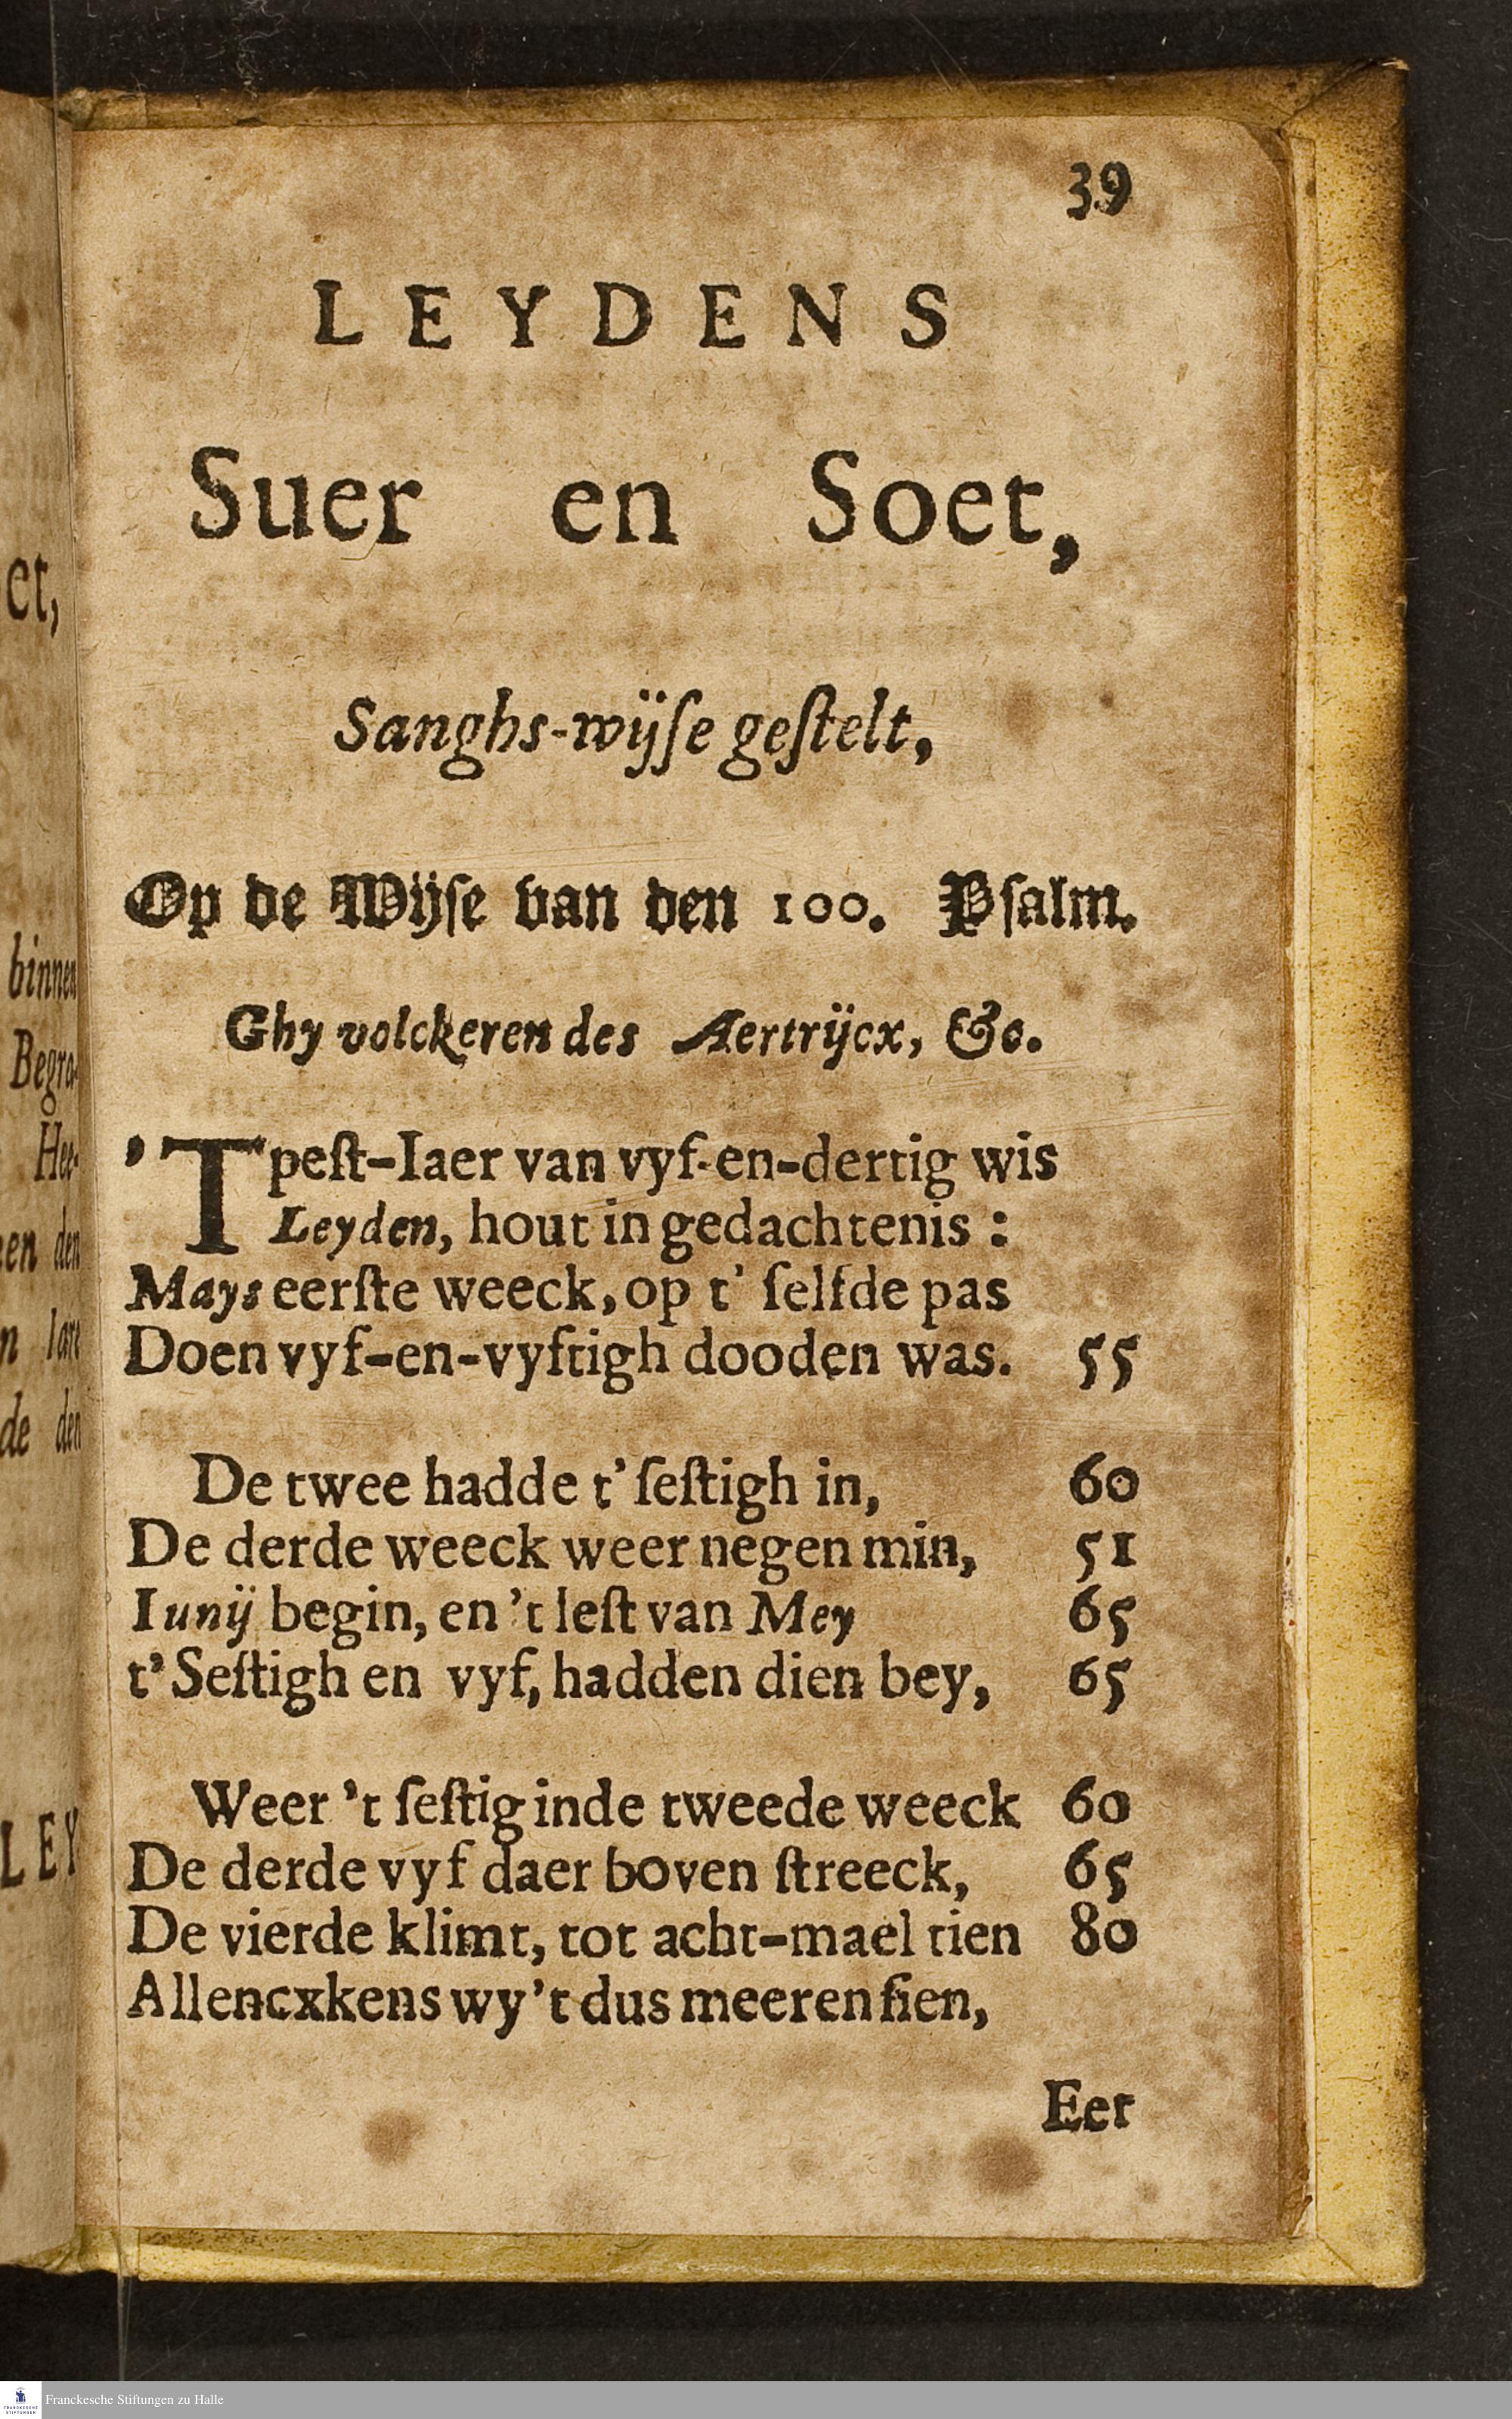 39
LEYDENS
Suer en Soet,
Sanghs-wijſe geſtelt,
Op de Wijſe van den 100. Pſalm.
Ghy volckeren des Aertrijcx, &c.
'T peſt-Iaer van vyf-en-dertig wis
Leyden, hout in gedachtenis :
Mays eerſte weeck, op t' ſelfde pas
Doen vyf-en-vyftigh dooden was. 55
De twee hadde t' ſeſtigh in, 60
De derde weeck weer negen min, 51
Iunij begin, en 't leſt van Mey 65
t' Seſtigh en vyf, hadden dien bey, 65
Weer 't ſeſtig inde tweede weeck 60
De derde vyf daer boven ſtreeck, 65
De vierde klimt, tot acht-mael tien 80
Allencxkens wy 't dus meeren ſien,
Eer
et,
binnen
Begra-
Hee-
den
de den
LEY
Franckesche Stiftungen zu Halle